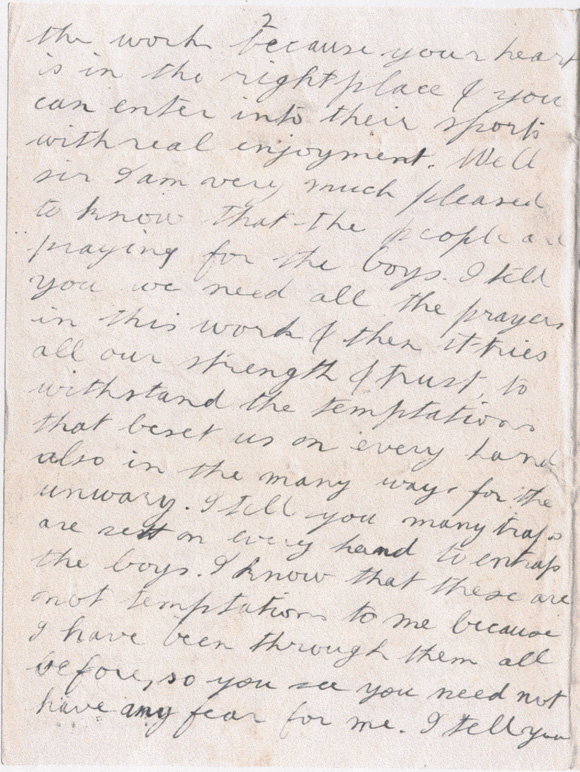 2
the work because your heart
is in the right place & you
can enter into their sports
with real enjoyment. Well
sir I am very much pleased
to know that the people are
praying for the boys. I tell
you we need all the prayers
in this work & then it tries
all our strength & trust to
withstand the temptations
that beset us on every hand
also in the many ways for the
unwary. I tell you many traps
are set on every hand to entrap
the boys. I know that these are
not temptations to me because
I have been through them all
before, so you see you need not
have any fear for me. I tell you